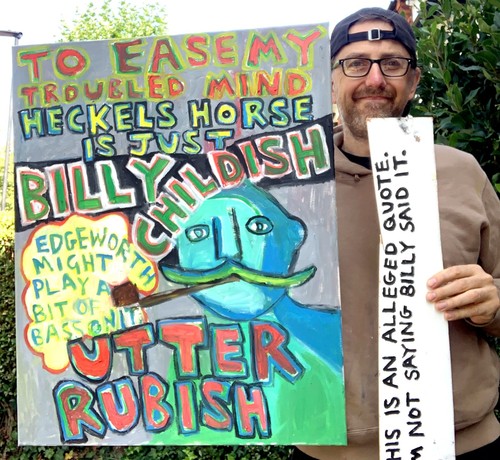 TO EASE MY
TROUBLED MIND
HECKELS HORSE
IS JUST
BILLY
CHILDISH
EDGEWORTH
MIGHT
PLAY A
BIT OF
BASS ON IT
UTTER
RUBISH
HIS IS AN ALLEGED QUOTE.
M NOT SAYING BILLY SAID IT.